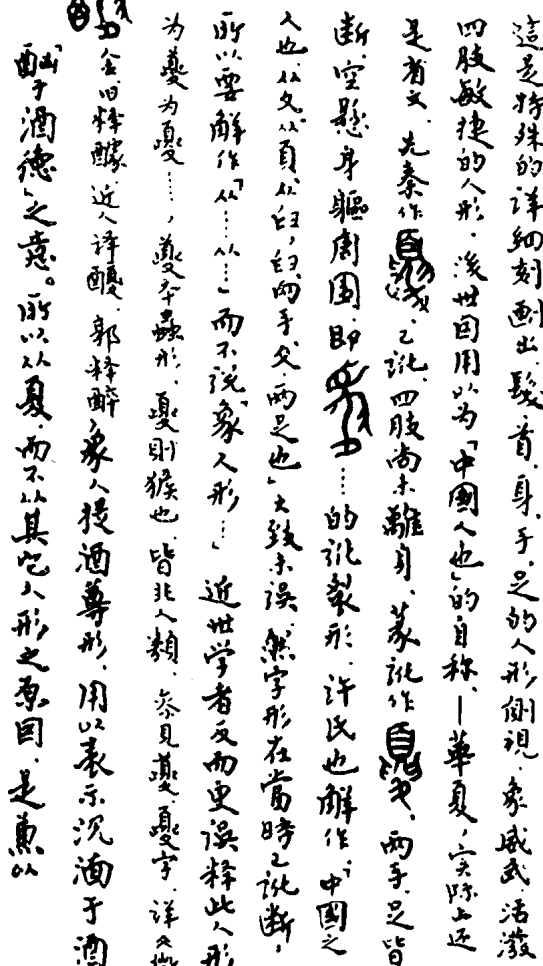 這是特殊的详細刻劃出、髮、首、身、手、足的人形側視、象威武活潑
四肢敏捷的人形。後世因用以为「中國人也」的自称、—華夏，实际上还
是省文。先秦作、已訛、四肢尚未離身、篆訛作、兩手、足皆
断、空懸身軀周围、即……的訛裂形、许氏也解作「中國之
人也、从夊从頁、从臼，臼、兩手夊、兩足也」大致未误、然字形在當時已訛断，
所以要解作「从……从……」而不説「象人形…」近世学者反而更误释此人形
为夔为夒……，夔本蟲形、夒則猴也、皆非人類、参見夔、夒字、详文
金、旧释醵、近人译、郭释醉，象人提酒尊形、用以表示沉湎于酒
于酒德」之意。所以从夏、而不从其它人形之原因、是兼以